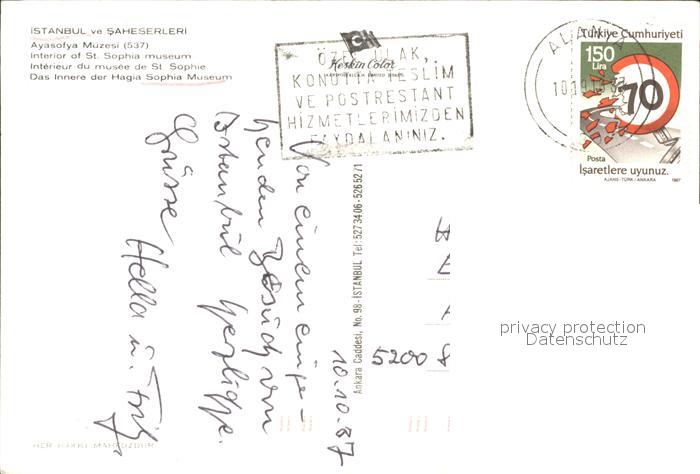 İSTANBUL ve ŞAHESERLERİ
Ayasofya Müzesi (537)
Interior of St. Sophia museum
Intérieur du musée de St. Sophie
Das Innere der Hagia Sophia Museum
Keskin Color
ÖZEL ULAK,
KONUTTA TESLİM
VE POSTRESTANT
HİZMETLERİMİZDEN
FAYDALANINIZ.
ALANYA
Türkiye Cumhuriyeti
150
Lira
70
Posta
İşaretlere uyunuz.
AJANS-TÜRK/ANKARA 1987
Ankara Caddesi, No. 98-İSTANBUL Tel: 5273406-5265271
10.10.87
Von einem
von
Istanbul herzliche
Grüsse Hella u. Fritz
5200
privacy protection
Datenschutz
HER HAKKI MAHFUZDUR